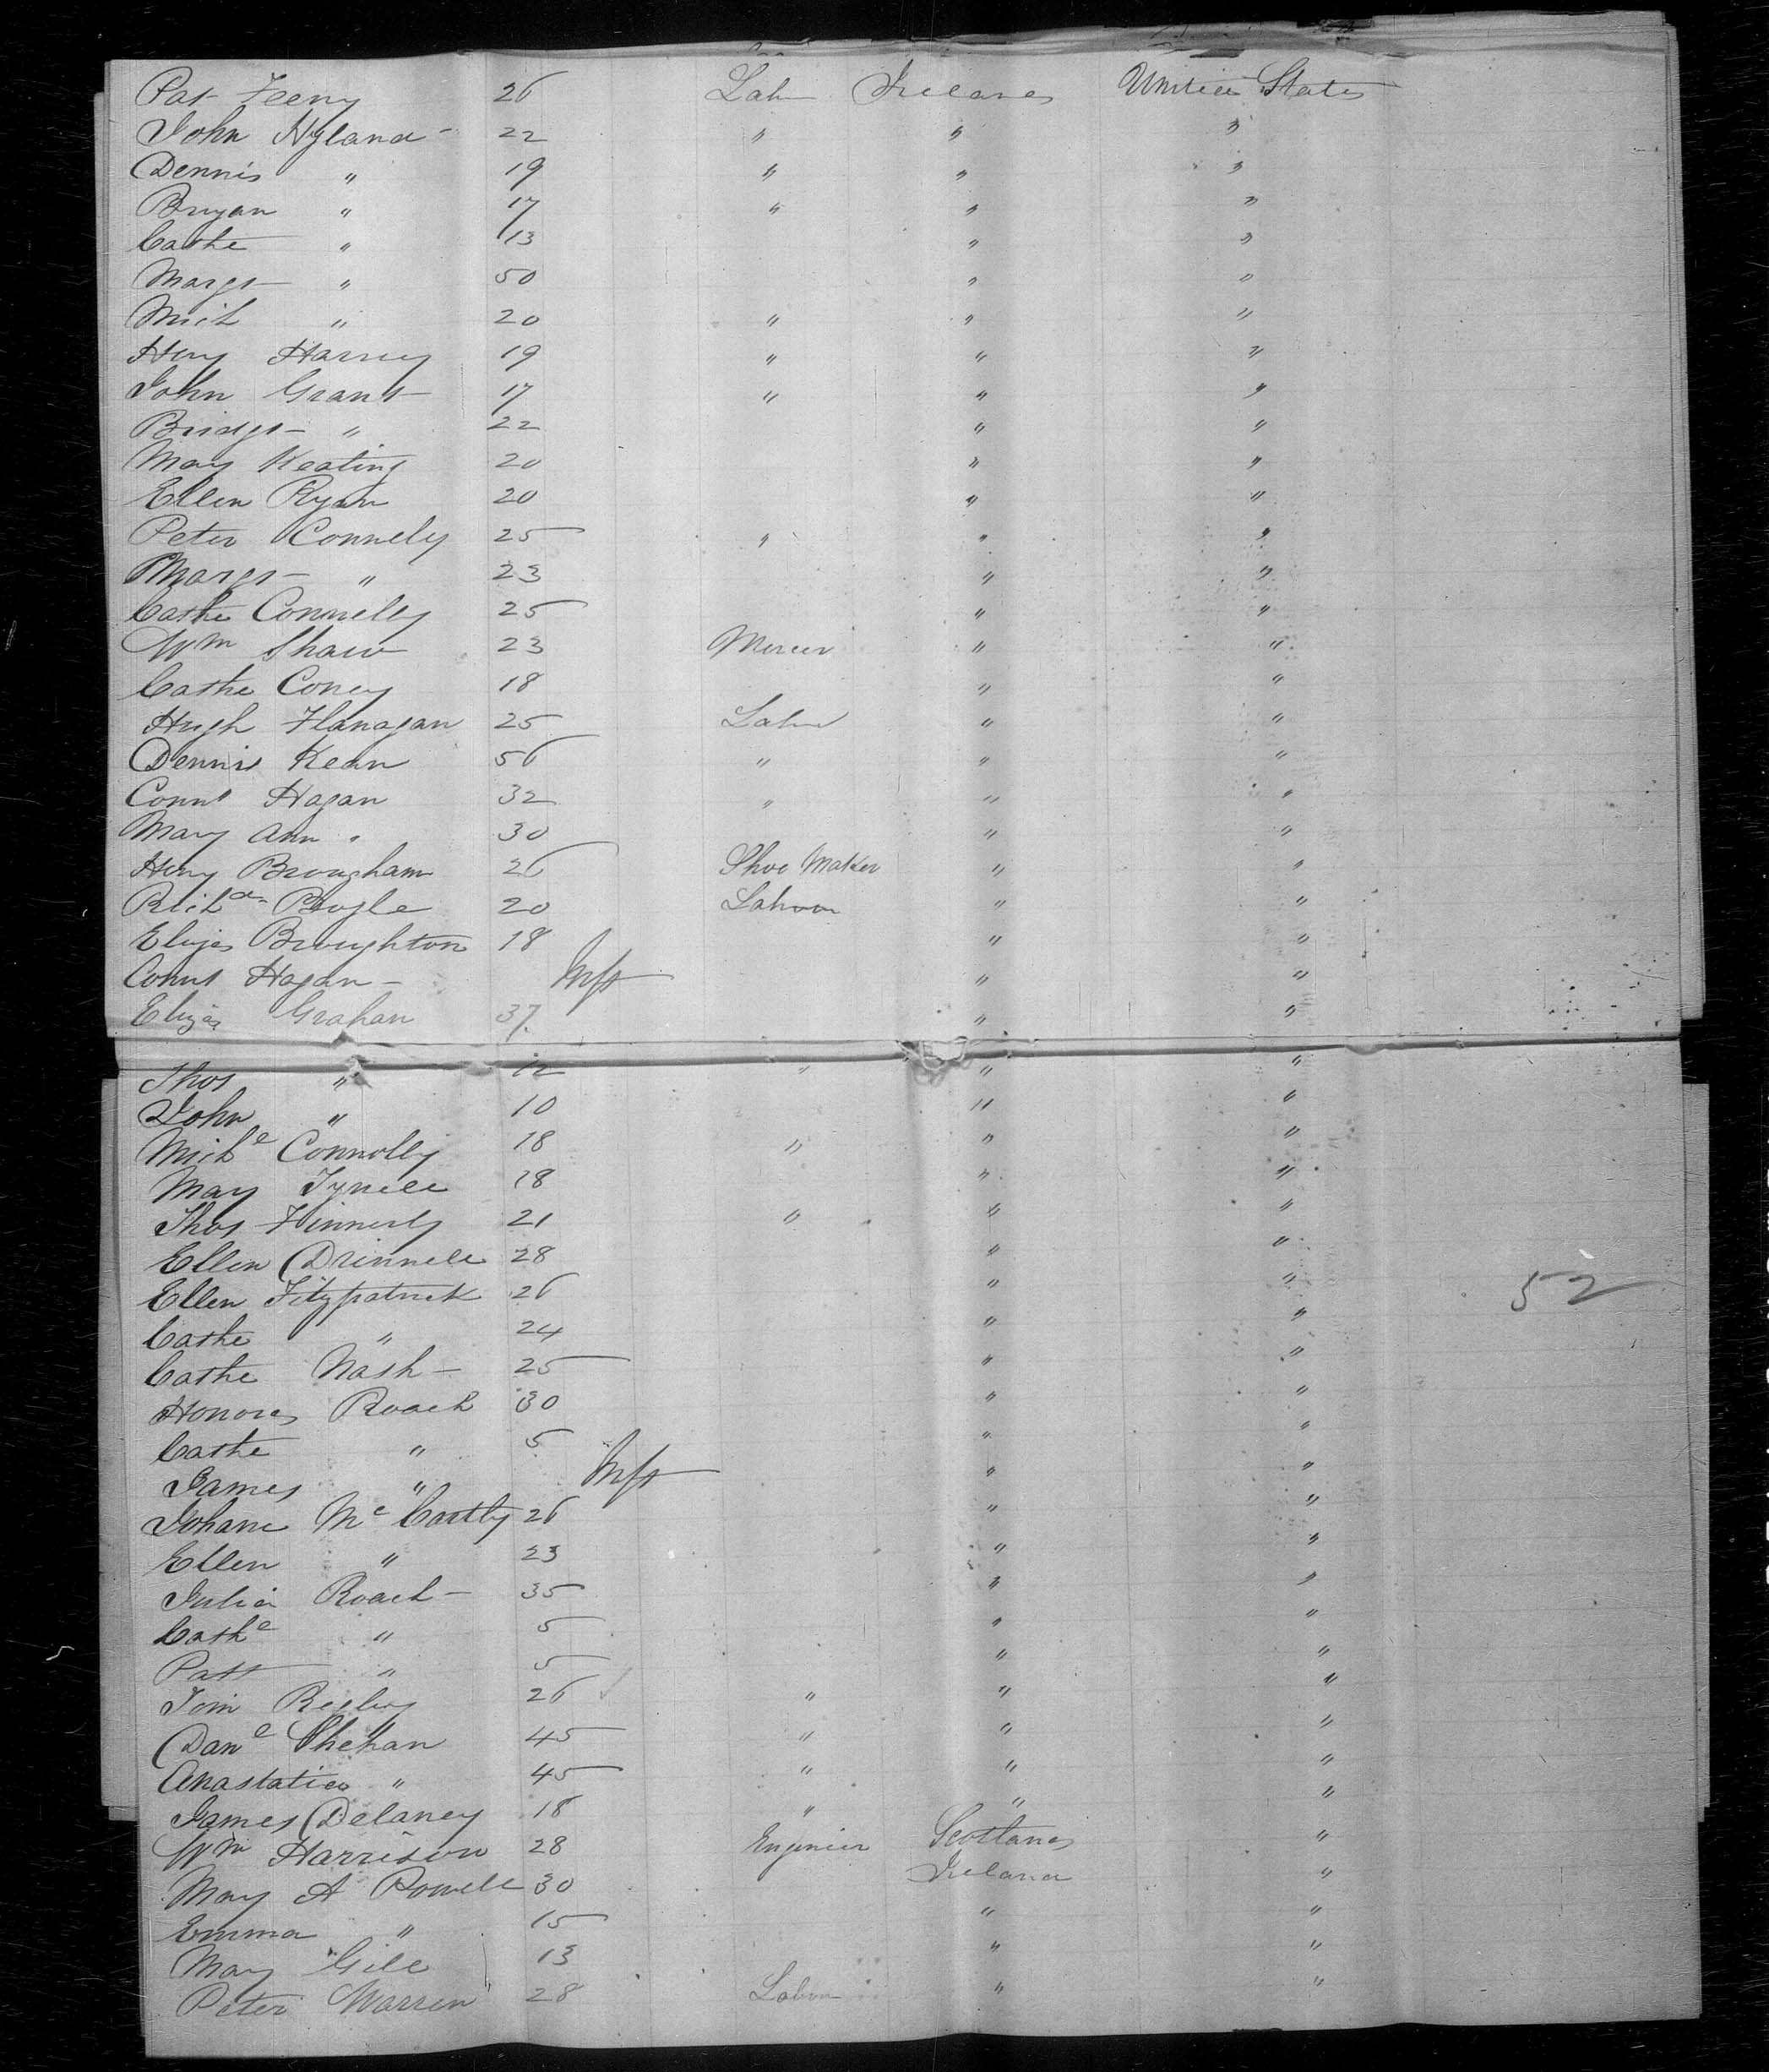 Pat Feeny 26 Labr Ireland United States
John Hyland 22 " " "
Dennis " 19 " " "
Bryan " 17 " " "
Cathe " 13 " "
Margt " 50 " "
Mich " 20 " " "
Heny Harvey 19 " " "
John Grant 17 " " "
Bridgt " 22 " "
Mary Keating 20 " "
Ellen Ryan 20 " "
Peter Connely 25 " " "
Margt " 23 " "
Cathe Connelly 25 " "
Wm Shaw 23 Mercer " "
Cathe Coney 18 " "
Hugh Flanagan 25 Labr " "
Dennis Kean 56 " " "
Conns Hagan 32 " " "
Mary Ann " 30 " "
Heny Brougham 26 Shoe Maker " "
Richd Bogle 20 Labour " "
Eliza Broughton 18 " "
Conns Hagan Inft " "
Eliza Graham 37 " "
Thos " 12 " " "
John " 10 " "
Michl Connolly 18 " " "
Mary Tynell 18 " "
Thos Finnerty 21 " " "
Ellen Drinnell 28 " "
Ellen Fitzpatrick 26 " "
Cathe " 24 " "
Cathe Nash 25 " "
Honora Roach 30 " "
Cathe " 5 " "
James " Inft " "
Johana McCartty 26 " "
Ellen " 23 " "
Julia Roach 35 " "
Cathe " 5 " "
Patt " 5 " "
Tom 26 " " "
Danl Shehan 45 " " "
Anastatia " 45 " " "
James Delaney 18 " " "
Wm Harrison 28 Enginier Scotland "
Mary A Powell 30 Ireland "
Emma " 15 " "
Mary Gill 13 " "
Peter Warren 28 Labour " "
52